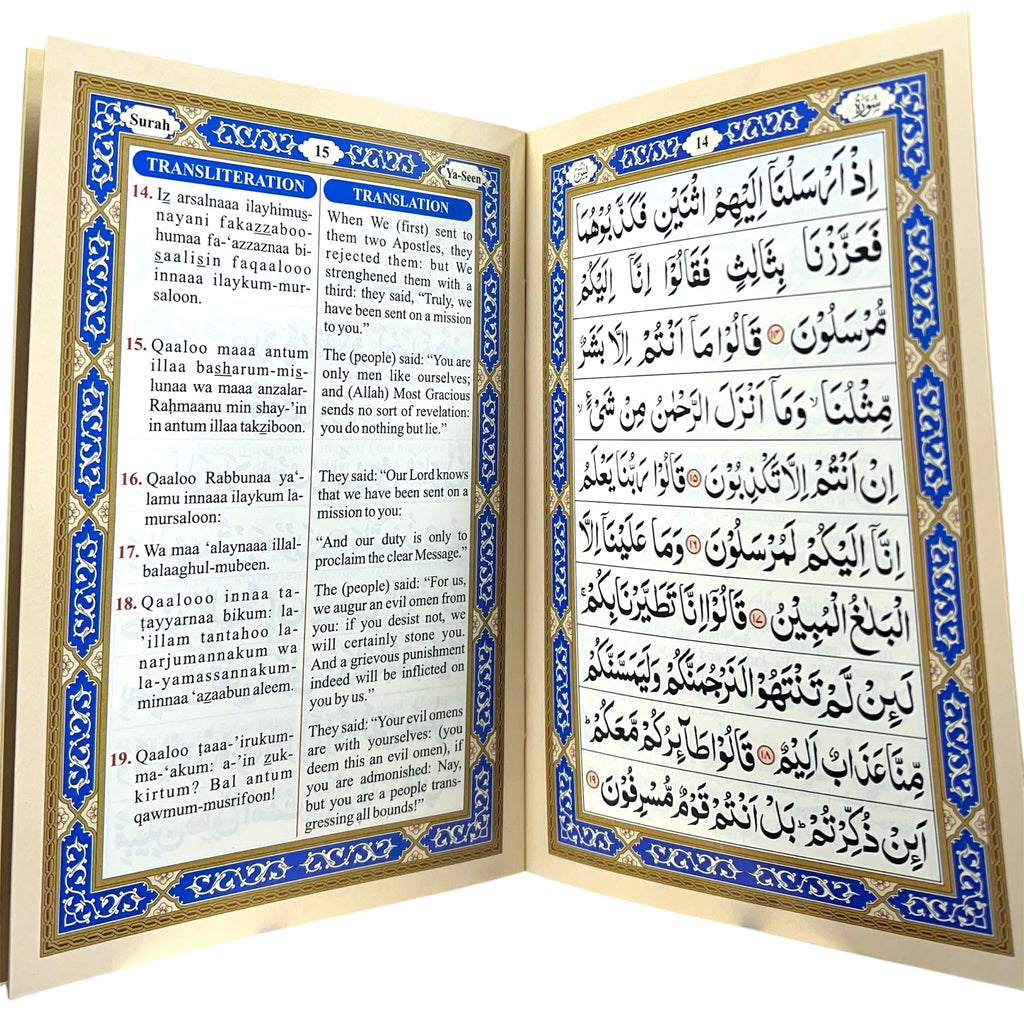 سورة
14
يس
اِذْ اَرْسَلْنَاۤ اِلَیْهِمُ اثْنَیْنِ فَكَذَّبُوْهُمَا
فَعَزَّزْنَا بِثَالِثٍ فَقَالُوْۤا اِنَّاۤ اِلَیْكُمْ
مُّرْسَلُوْنَ ۱۴ قَالُوْا مَاۤ اَنْتُمْ اِلَّا بَشَرٌ
مِّثْلُنَا ۙ وَمَاۤ اَنْزَلَ الرَّحْمٰنُ مِنْ شَیْءٍ ۙ
اِنْ اَنْتُمْ اِلَّا تَكْذِبُوْنَ ۱۵ قَالُوْا رَبُّنَا یَعْلَمُ
اِنَّاۤ اِلَیْكُمْ لَمُرْسَلُوْنَ ۱۶ وَمَا عَلَیْنَاۤ اِلَّا
الْبَلٰغُ الْمُبِیْنُ ۱۷ قَالُوْۤا اِنَّا تَطَیَّرْنَا بِكُمْ ۚ
لَىِٕنْ لَّمْ تَنْتَهُوْا لَنَرْجُمَنَّكُمْ وَلَیَمَسَّنَّكُمْ
مِّنَّا عَذَابٌ اَلِیْمٌ ۱۸ قَالُوْا طَآىِٕرُكُمْ مَّعَكُمْ ؕ
اَىِٕنْ ذُكِّرْتُمْ ؕ بَلْ اَنْتُمْ قَوْمٌ مُّسْرِفُوْنَ ۱۹
Surah
15
Ya-Seen
TRANSLITERATION
14. Iz arsalnaaa ilayhimus-
nayani fakazzaboo-
humaa fa-‘azzaznaa bi-
saalisin faqaalooo
innaaa ilaykum-mur-
saloon.
15. Qaaloo maaa antum
illaa basharum-mis-
lunaa wa maaa anzalar-
Raḥmaanu min shay-’in
in antum illaa takziboon.
16. Qaaloo Rabbunaa ya‘-
lamu innaaa ilaykum la-
mursaloon:
17. Wa maa ‘alaynaaa illal-
balaaghul-mubeen.
18. Qaalooo innaa ta-
ṭayyarnaa bikum: la-
’illam tantahoo la-
narjumannakum wa
la-yamassannakum-
minnaa ‘azaabun aleem.
19. Qaaloo ṭaaa-’irukum-
ma-‘akum: a-’in zuk-
kirtum? Bal antum
qawmum-musrifoon!
TRANSLATION
When We (first) sent to
them two Apostles, they
rejected them: but We
strenghened them with a
third: they said, “Truly, we
have been sent on a mission
to you.”
The (people) said: “You are
only men like ourselves;
and (Allah) Most Gracious
sends no sort of revelation:
you do nothing but lie.”
They said: “Our Lord knows
that we have been sent on a
mission to you:
“And our duty is only to
proclaim the clear Message.”
The (people) said: “For us,
we augur an evil omen from
you: if you desist not, we
will certainly stone you.
And a grievous punishment
indeed will be inflicted on
you by us.”
They said: “Your evil omens
are with yourselves: (you
deem this an evil omen), if
you are admonished: Nay,
but you are a people trans-
gressing all bounds!”